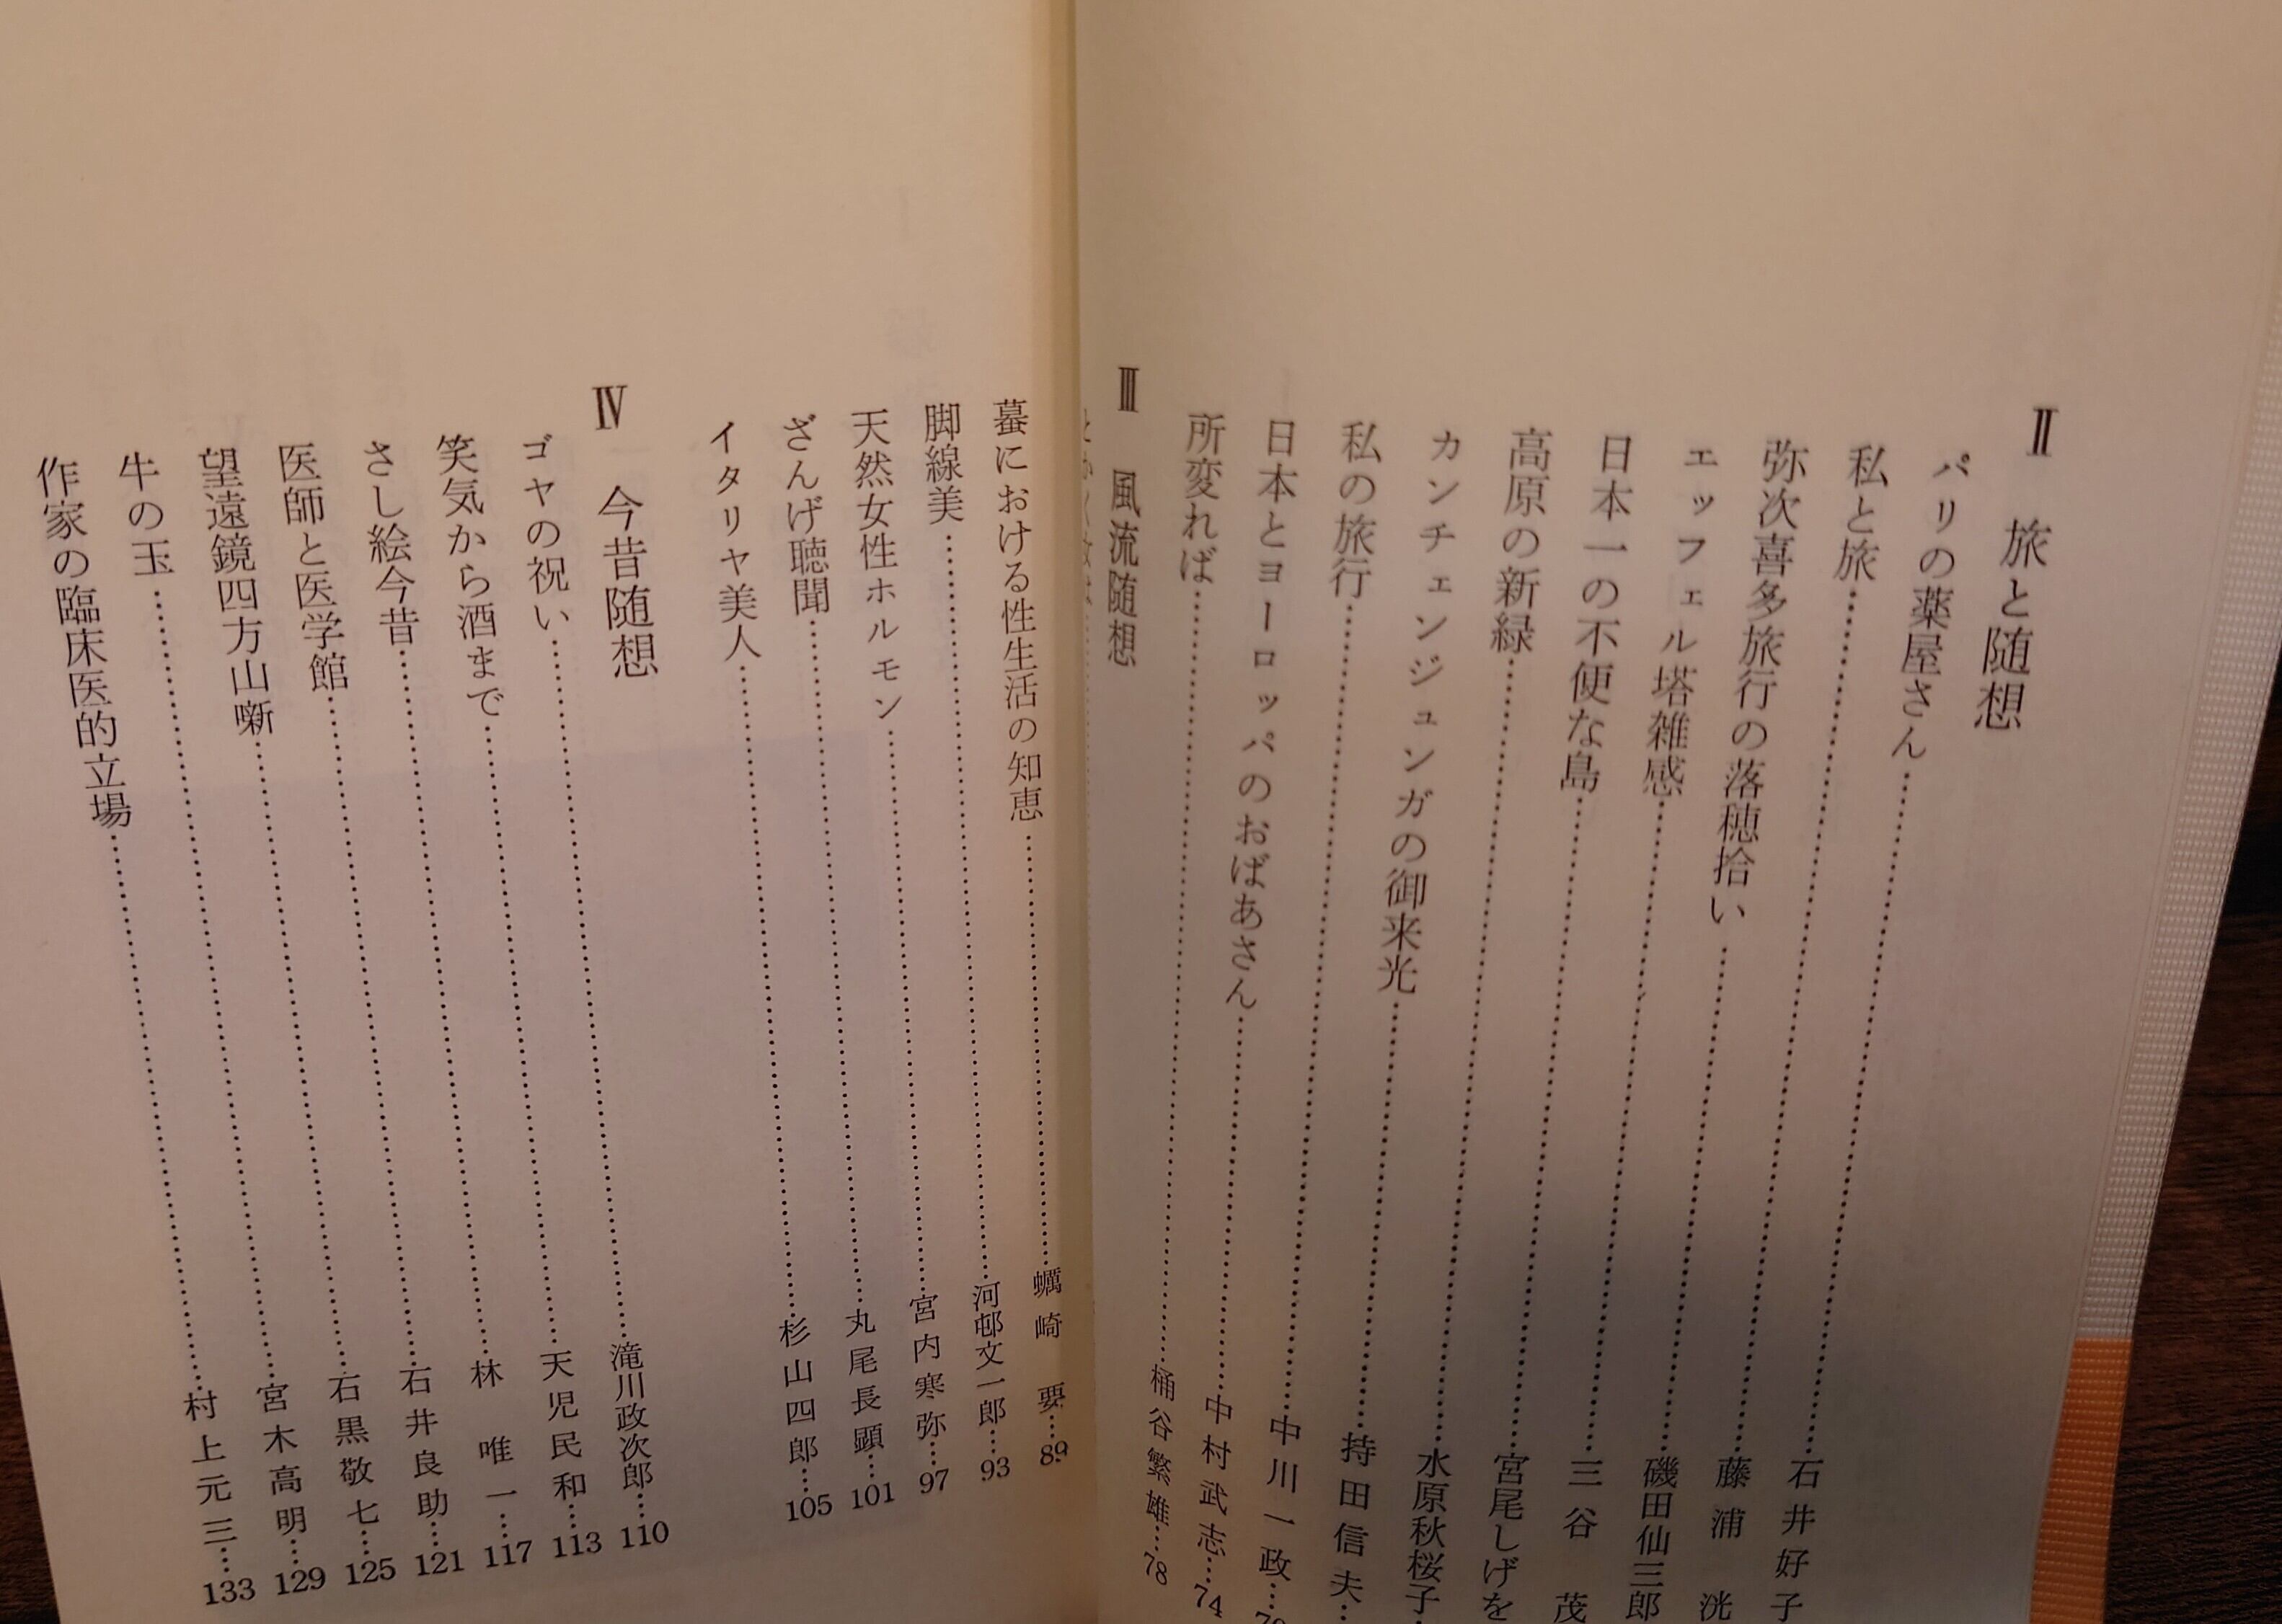 Ⅱ 旅と随想
パリの薬屋さん……石井好子
私と旅……藤浦洸
弥次喜多旅行の落穂拾い……磯田仙三郎
エッフェル塔雑感……三谷茂
日本一の不便な島……宮尾しげを
高原の新緑……水原秋桜子
カンチェンジュンガの御来光……持田信夫…
私の旅行……中川一政…
日本とヨーロッパのおばあさん……中村武志…74
所変れば……桶谷繁雄…78
Ⅲ 風流随想
蟇における性生活の知恵……蠣崎要…89
脚線美……河邨文一郎…93
天然女性ホルモン……宮内寒弥…97
ざんげ聴聞……丸尾長顕…101
イタリヤ美人……杉山四郎…105
Ⅳ 今昔随想
ゴヤの祝い……滝川政次郎…110
笑気から酒まで……天児民和…113
さし絵今昔……林唯一…117
医師と医学館……石井良助…121
望遠鏡四方山噺……石黒敬七…125
牛の玉……宮木高明…129
作家の臨床医的立場……村上元三…133